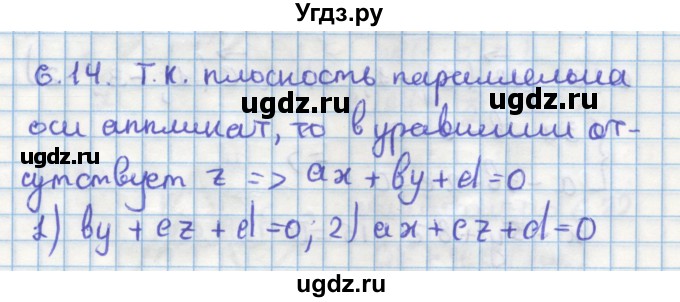 Угдз.ру
6.14. Т.к. плоскость параллельна
ugdz.ru ugdz.ru
оси аппликат, то в уравнении от-
ugdz.ru ugdz.ru
сутствует z => ax + by + d = 0
1) by + cz + d = 0; 2) ax + cz + d = 0
ugdz.ru